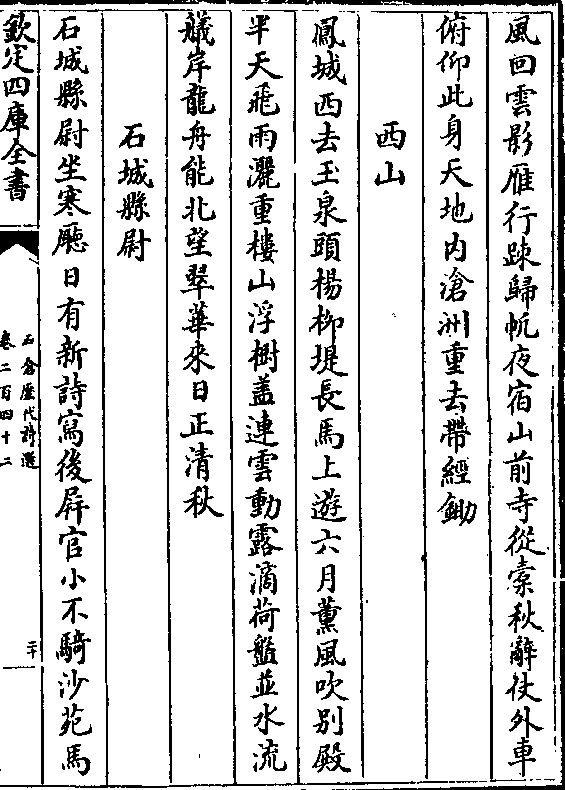 風回雲影雁行疎歸帆夜宿山前寺從橐秋辭仗外車
俯仰此身天地内滄洲重去帶經鋤
西山
鳳城西去玉泉頭楊栁堤長馬上遊六月薫風吹别殿
半天飛雨灑重樓山浮樹盖連雲動露滴荷盤並水流
艤岸龍舟能北望翠華來日正清秋
石城縣尉
石城縣尉坐寒廳日有新詩寫後屏官小不騎沙苑馬
欽定四庫全書
石倉歷代詩選
卷二百四十二
二十